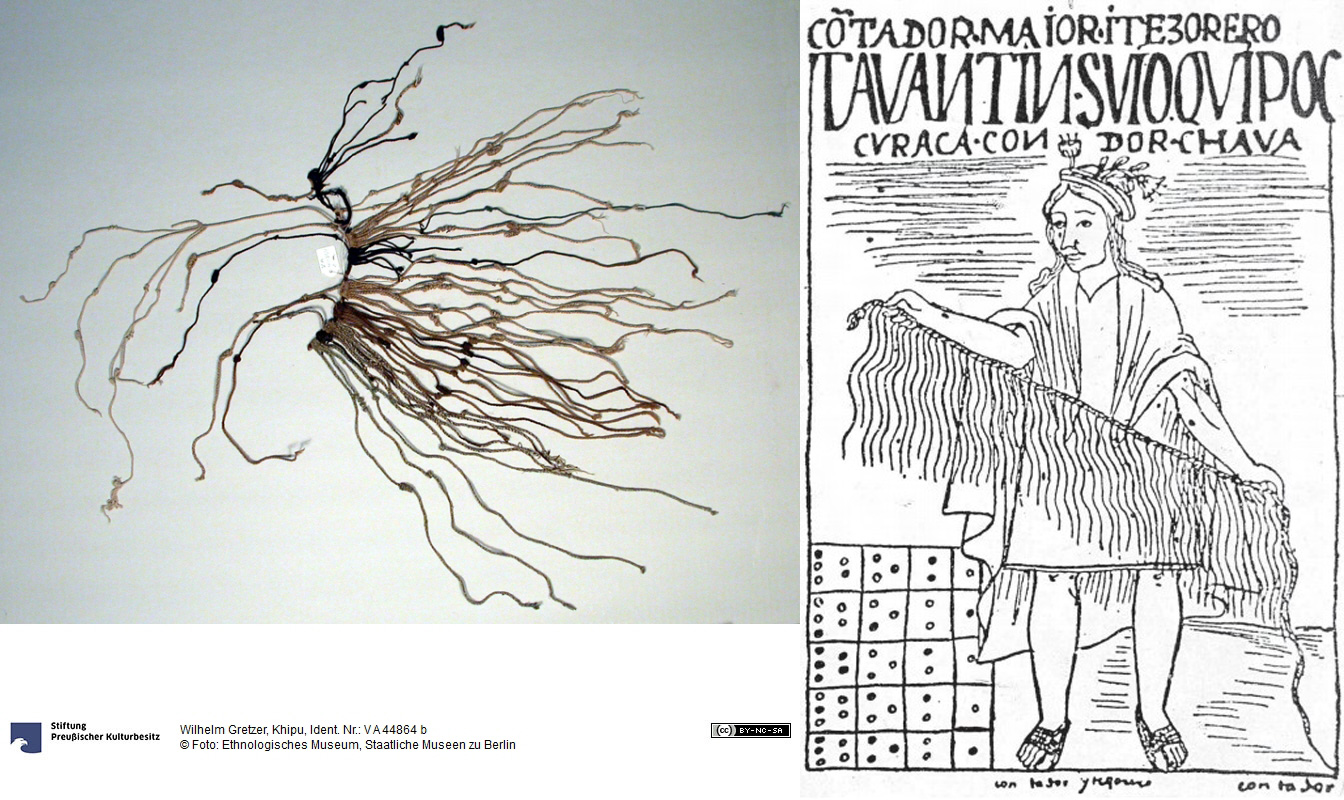 Stiftung
Preußischer Kulturbesitz
Wilhelm Gretzer, Khipu, Ident. Nr.: V A 44864 b
© Foto: Ethnologisches Museum, Staatliche Museen zu Berlin
cc BY-NC-SA
CÕTADOR·MAIOR·ITEZORERO
TAVANTIN·SVIO·QVIPOC
CVRACA·CON DOR·CHAVA
con tador y tezorero
con tador